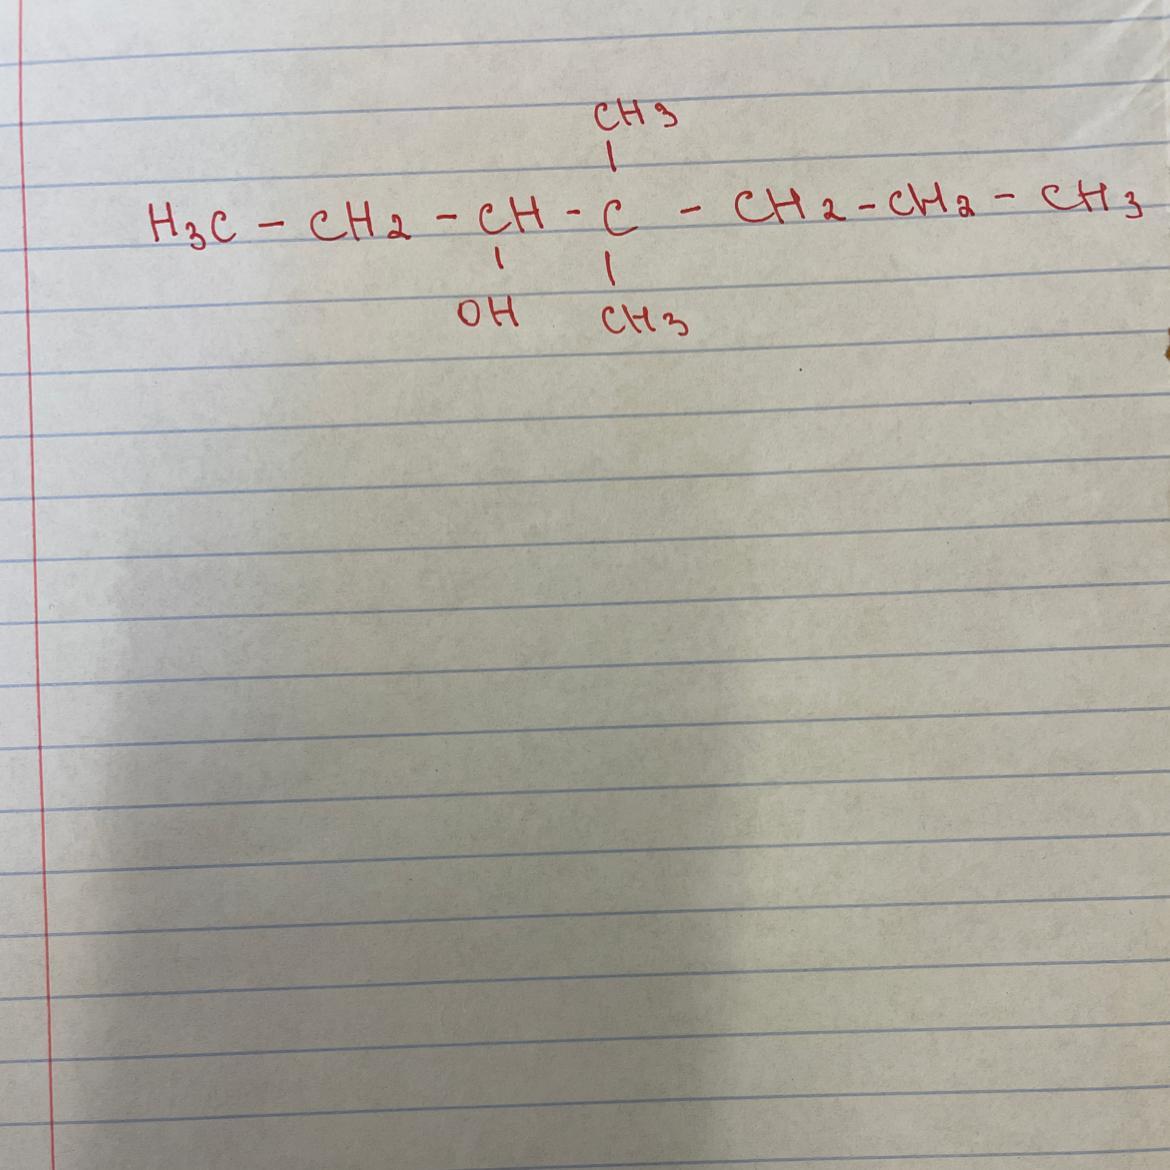 CH3
H3C - CH2 - CH - C - CH2 - CH2 - CH3
OH CH3